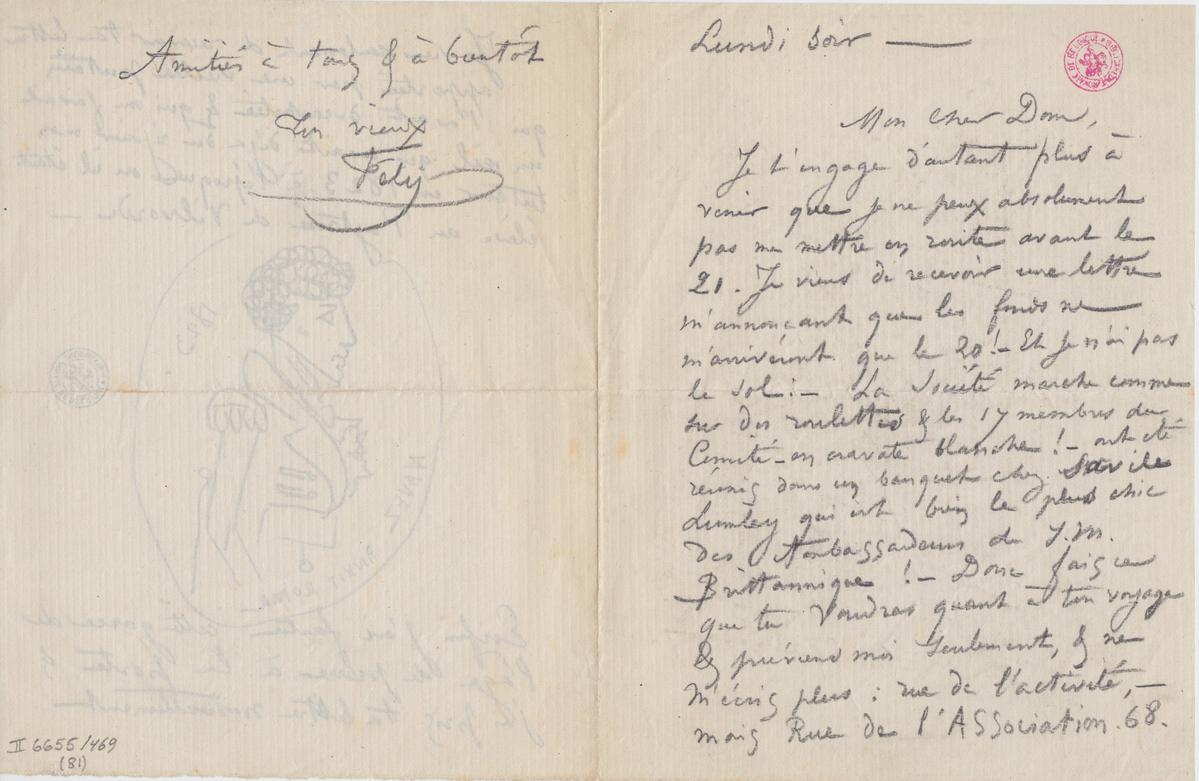 Amitiés à tous & à bientôt
Ton vieux
Fély
II 6655/469
(81)
Lundi soir —
Mon cher Dom,
Je t'engage d'autant plus à
venir que je ne peux absolument
pas me mettre en route avant le
20. Je viens de recevoir une lettre
m'annonçant que les fonds ne
m'arrivèront que le 20! – Et je n'ai pas
le sol! – La Société marche comme
sur des roulettes & les 17 membres du
Comité – en cravate blanche! – ont été
réunis dans un banquet chez Savile
Lumley qui est bien le plus chic
des Ambassadeurs de S.M.
Brittannique! – Donc fais ce
que tu voudras quant à ton voyage
& préviens moi seulement, & ne
m'écris plus : rue de l'activité, –
mais Rue de l'Association. 68.